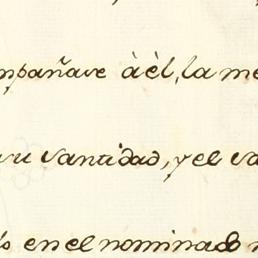 mpañave à èl, la me
su Santidad, y el Sa
en el nominado